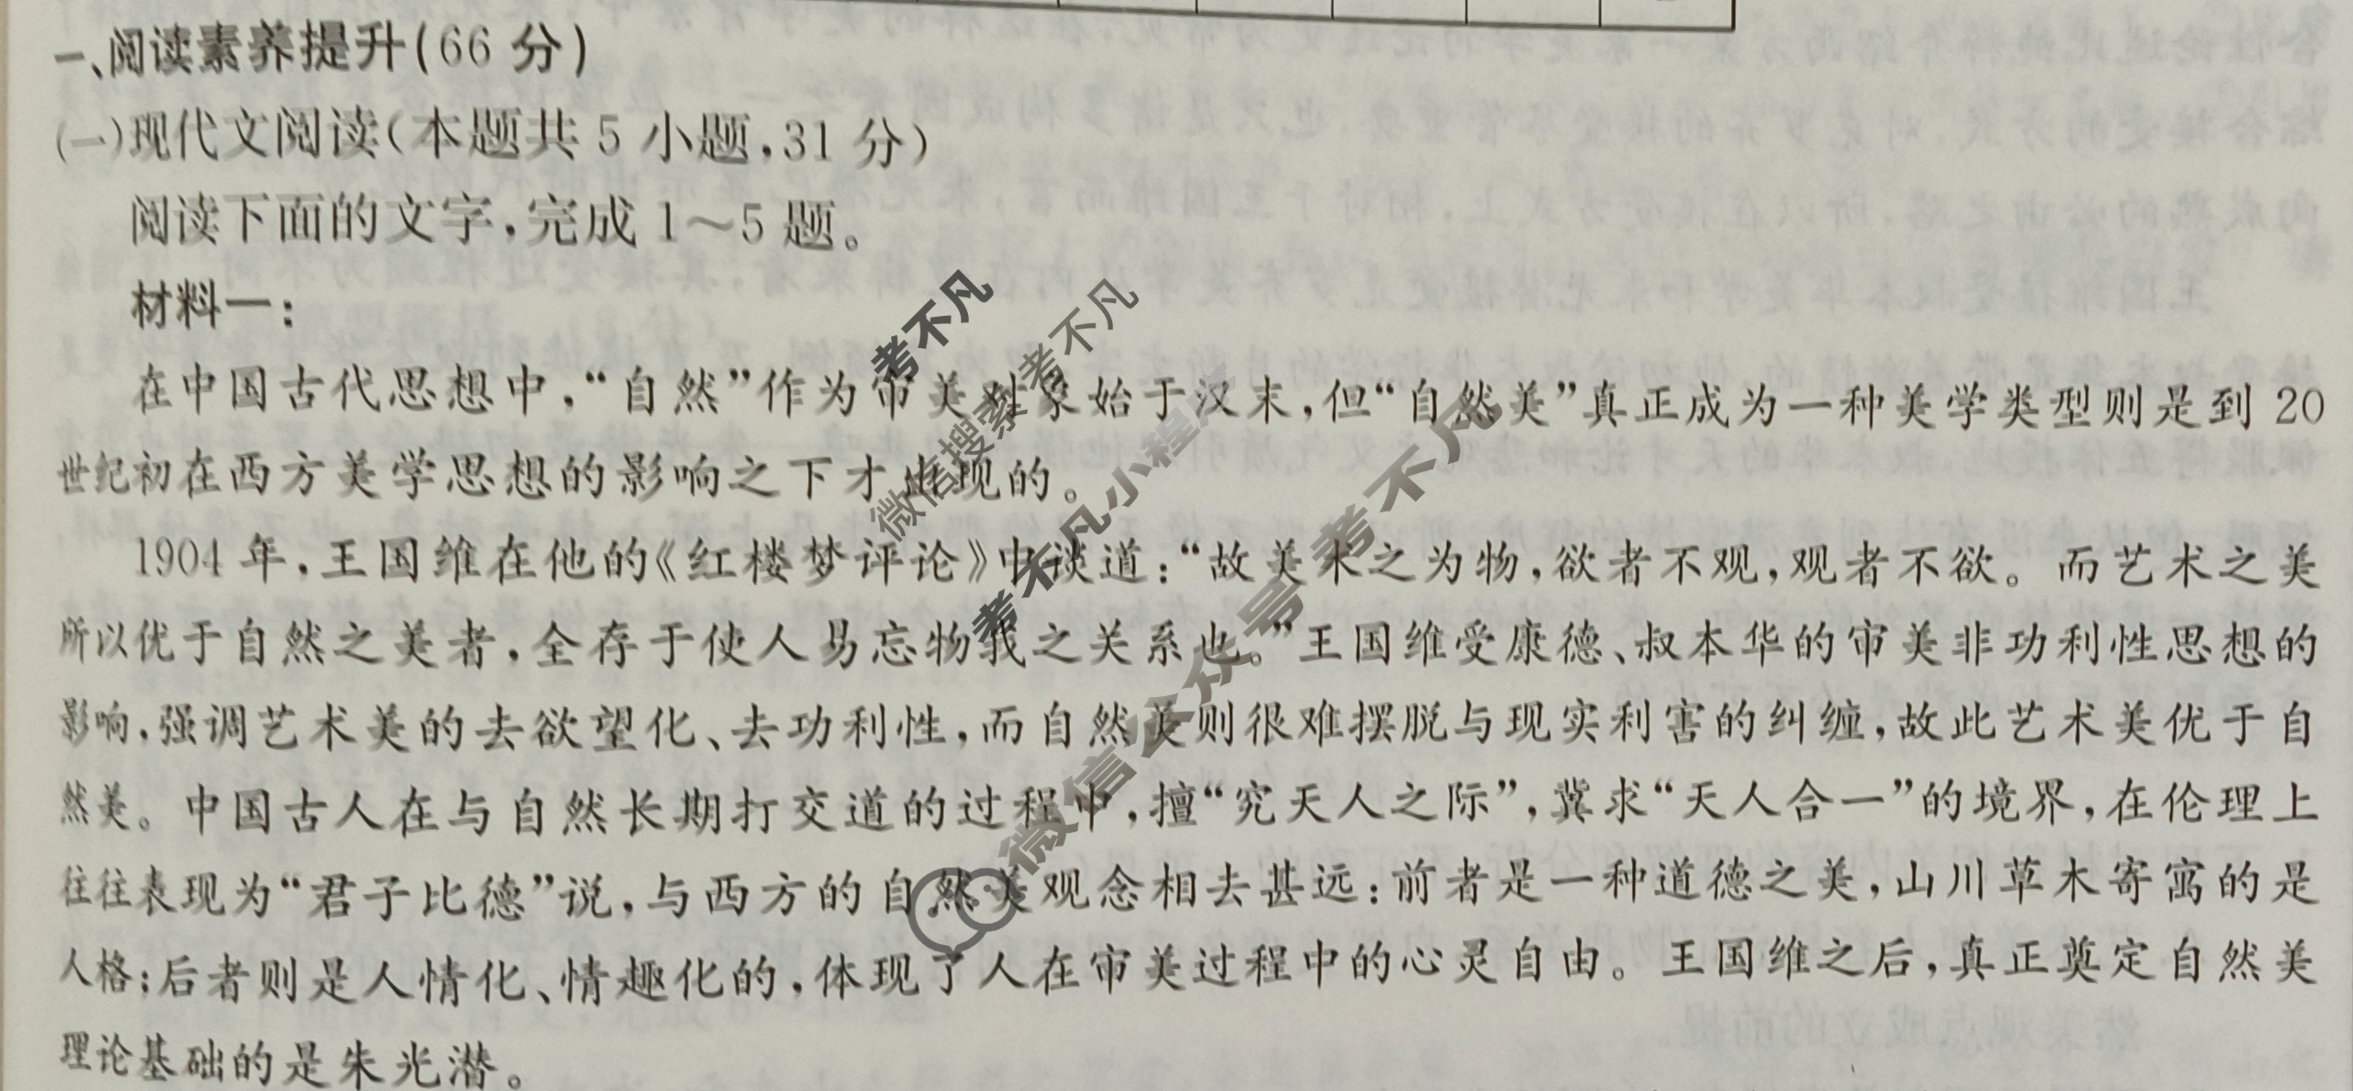 一、阅读素养提升(66 分)
(一)现代文阅读(本题共 5 小题,31 分)
阅读下面的文字,完成 1～5 题。
材料一:
在中国古代思想中,“自然”作为审美对象始于汉末,但“自然美”真正成为一种美学类型则是到 20
世纪初在西方美学思想的影响之下才出现的。
1904 年,王国维在他的《红楼梦评论》中谈道:“故美术之为物,欲者不观,观者不欲。而艺术之美
所以优于自然之美者,全存于使人易忘物我之关系也。”王国维受康德、叔本华的审美非功利性思想的
影响,强调艺术美的去欲望化、去功利性,而自然美则很难摆脱与现实利害的纠缠,故此艺术美优于自
然美。中国古人在与自然长期打交道的过程中,擅“究天人之际”,冀求“天人合一”的境界,在伦理上
往往表现为“君子比德”说,与西方的自然美观念相去甚远:前者是一种道德之美,山川草木寄寓的是
人格;后者则是人情化、情趣化的,体现了人在审美过程中的心灵自由。王国维之后,真正奠定自然美
理论基础的是朱光潜。
考不凡
微信搜索考不凡
考不凡小程序
微信公众号考不凡